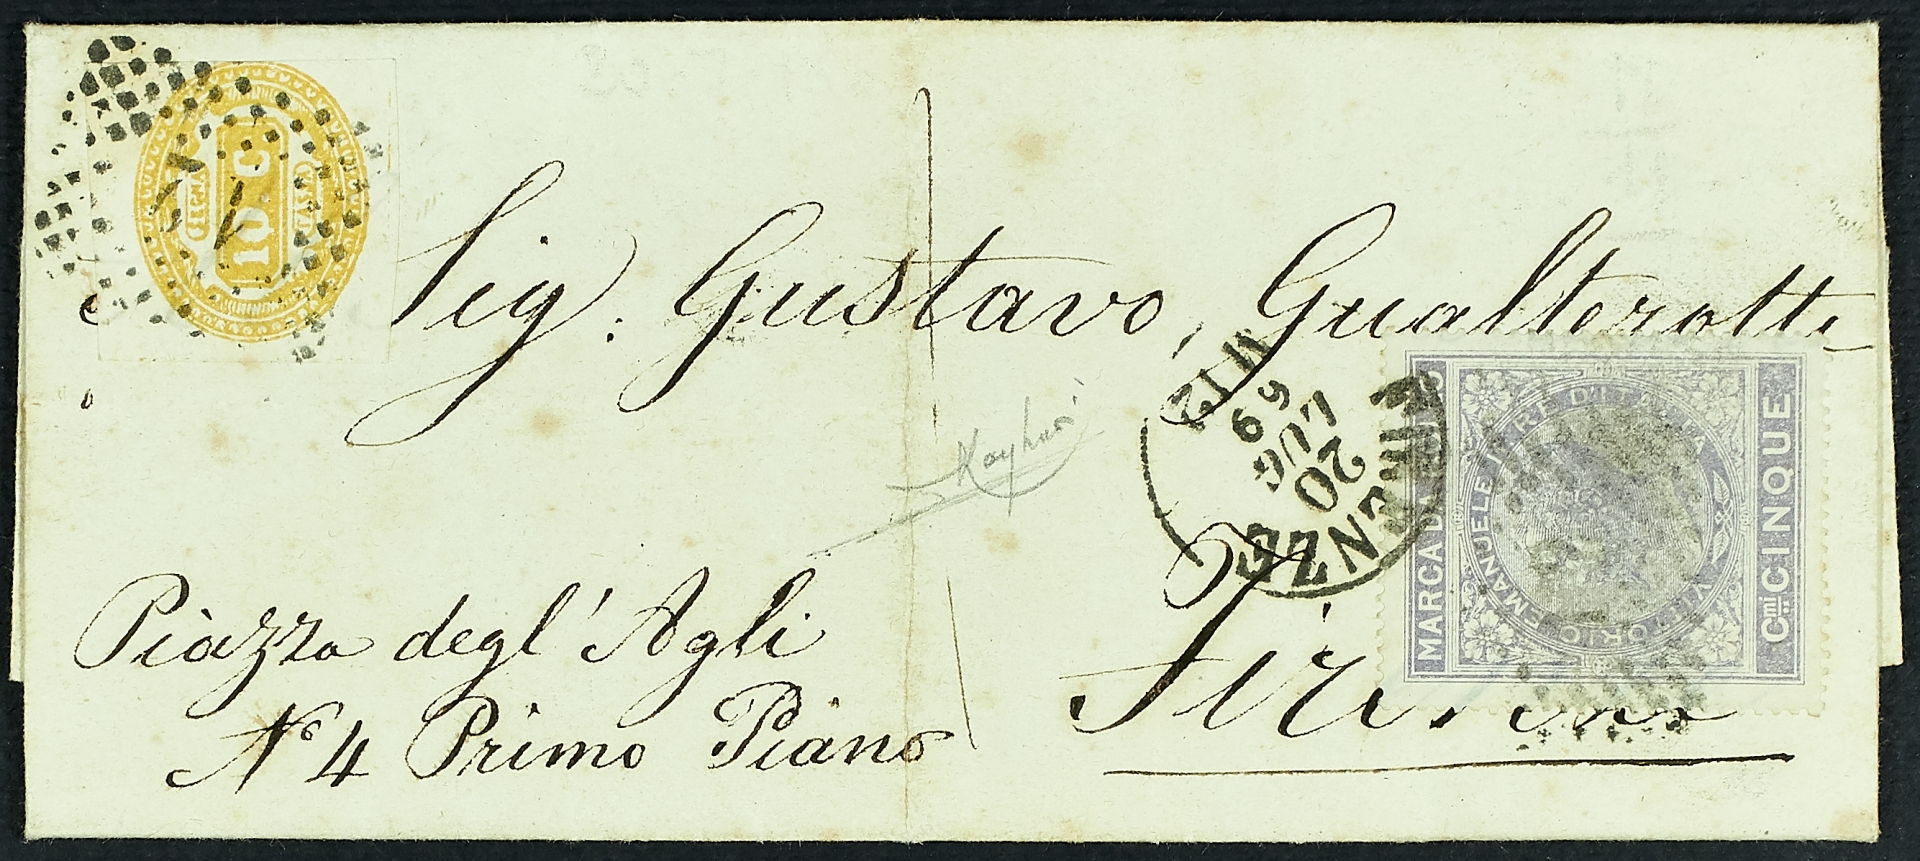 10 C.
SEGNA TASSA
Sig. Gustavo, Gualterotti
FIRENZE
20
LUG
69
12 M
MARCA DA BOLLO
VITTORIO EMANUELE II RE D'ITALIA
Cmi CINQUE
Firenze
Piazza degl' Agli
N° 4 Primo Piano